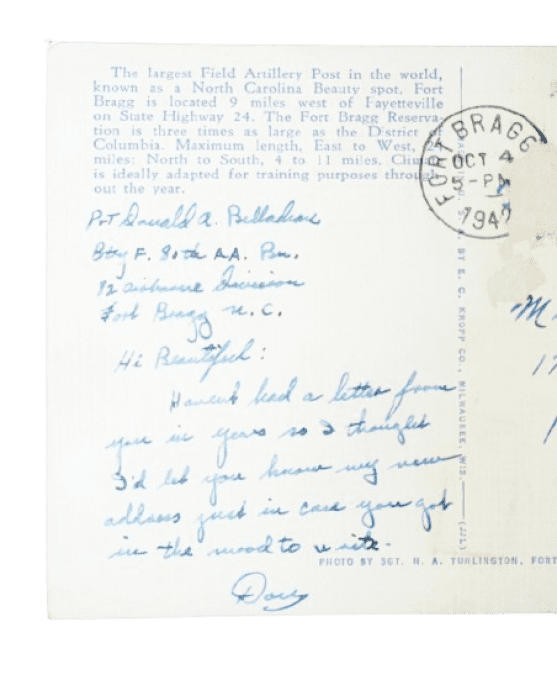 The largest Field Artillery Post in the world,
known as a North Carolina Beauty spot. Fort
Bragg is located 9 miles west of Fayetteville
on State Highway 24. The Fort Bragg Reserva-
tion is three times as large as the District of
Columbia. Maximum length, East to West,
miles: North to South, 4 to 11 miles.
is ideally adapted for training purposes through
out the year.
FORT BRAGG
OCT 4
5-PM
1947
Pvt Donald A.
Bty F. 80th AA. Bn.
82 airborne Division
Fort Bragg N.C.
Hi Beautiful:
Haven't had a letter from
you in years so I thought
I'd let you know my new
address just in case you got
in the mood to write.
BY E. C. KROPP CO., MILWAUKEE, WIS.
PHOTO BY SGT. H. A. TURLINGTON, FORT